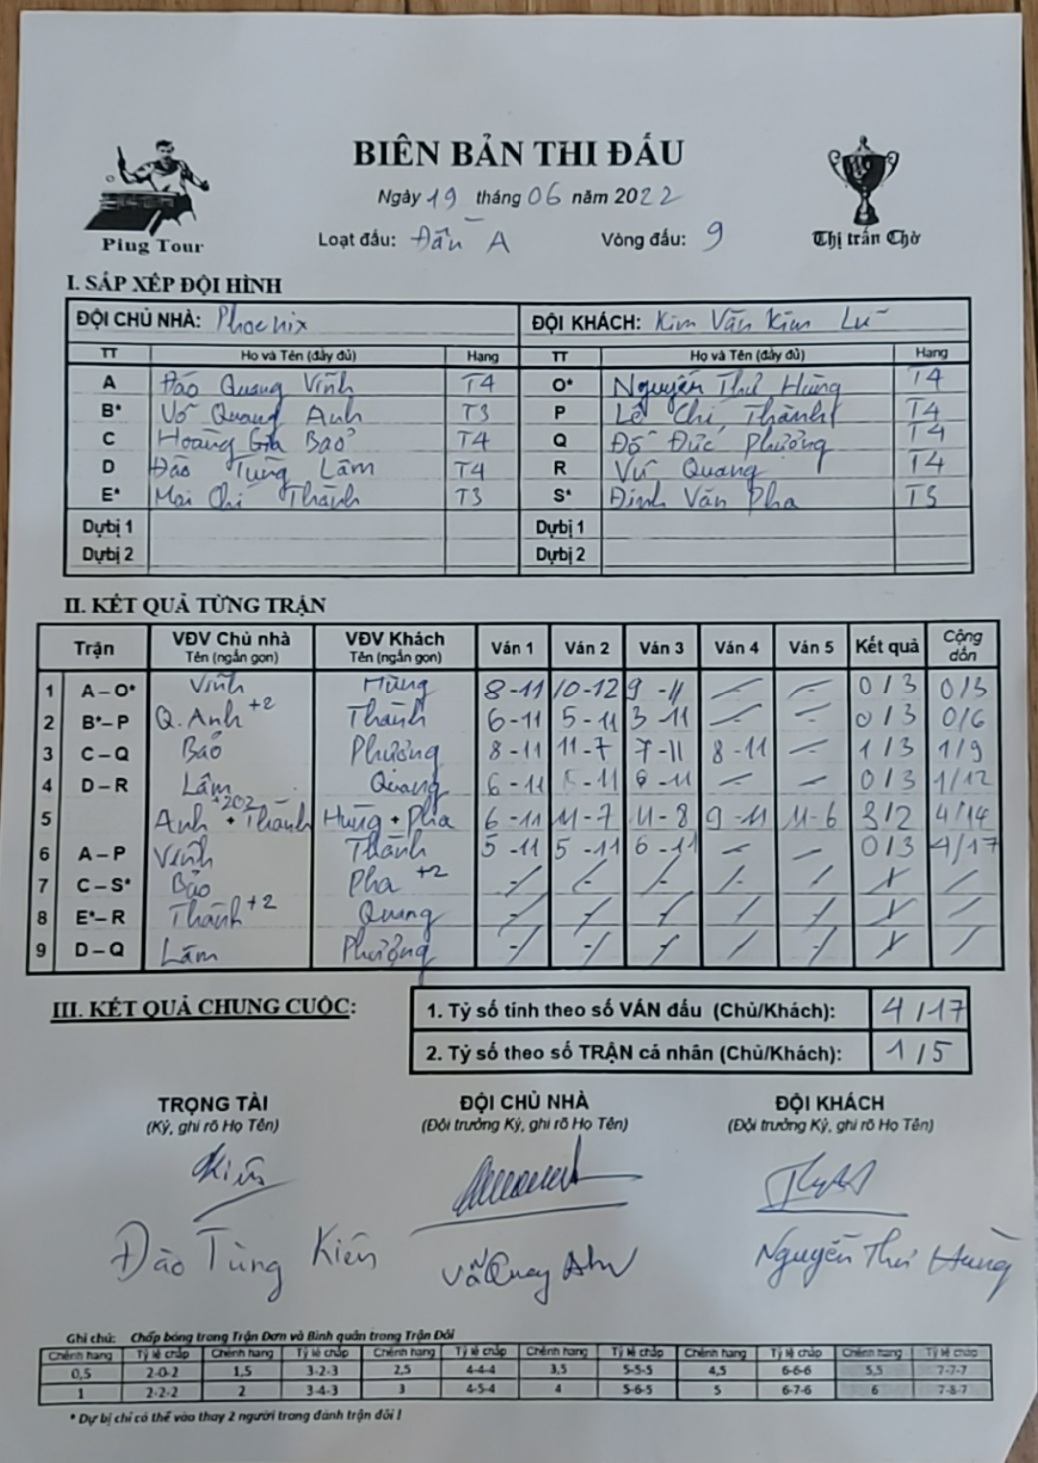 BIÊN BẢN THI ĐẤU
Ngày 19 tháng 06 năm 2022
Ping Tour
Loạt đấu: Đấu A Vòng đấu: 9
Thị trấn Chờ
I. SẮP XẾP ĐỘI HÌNH
ĐỘI CHỦ NHÀ: Phoenix ĐỘI KHÁCH: Kim Văn Kim Lũ
TT Họ và Tên (đầy đủ) Hạng TT Họ và Tên (đầy đủ) Hạng
A Đào Quang Vĩnh T4 O* Nguyễn Thư Hùng T4
B* Võ Quang Anh T3 P Lê Chí Thành T4
C Hoàng Gia Bảo T4 Q Đỗ Đức Phưởng T4
D Đào Tùng Lâm T4 R Vũ Quang T4
E* Mai Chí Thành T3 S* Đinh Văn Pha T5
Dự bị 1 Dự bị 1
Dự bị 2 Dự bị 2
II. KẾT QUẢ TỪNG TRẬN
Trận VĐV Chủ nhà VĐV Khách Ván 1 Ván 2 Ván 3 Ván 4 Ván 5 Kết quả Cộng dồn
Tên (ngắn gọn) Tên (ngắn gọn)
1 A – O* Vĩnh Hùng 8 - 11 10 - 12 9 - 11 0 / 3 0/3
2 B* – P Q. Anh +2 Thành 6 - 11 5 - 11 3 - 11 0 / 3 0/6
3 C – Q Bảo Phưởng 8 - 11 11 - 7 7 - 11 8 - 11 1 / 3 1/9
4 D – R Lâm Quang 6 - 11 - 11 6 - 11 0 / 3 1/12
5 Anh + Thành +202 Hùng + Pha 6 - 11 11 - 7 11 - 8 9 - 11 11 - 6 3 / 2 4/14
6 A – P Vĩnh Thành 5 - 11 5 - 11 6 - 11 0 / 3 4/17
7 C – S* Bảo Pha +2
8 E* – R Thành +2 Quang
9 D – Q Lâm Phưởng
III. KẾT QUẢ CHUNG CUỘC:
1. Tỷ số tính theo số VÁN đấu (Chủ/Khách): 4 / 17
2. Tỷ số theo số TRẬN cá nhân (Chủ/Khách): 1 / 5
TRỌNG TÀI ĐỘI CHỦ NHÀ ĐỘI KHÁCH
(Ký, ghi rõ Họ Tên) (Đội trưởng Ký, ghi rõ Họ Tên) (Đội trưởng Ký, ghi rõ Họ Tên)
Kiên
Đào Tùng Kiên Võ Quang Anh Nguyễn Thư Hùng
Ghi chú: Chấp bóng trong Trận Đơn và Bình quân trong Trận Đôi
Chênh hạng Tỷ lệ chấp Chênh hạng Tỷ lệ chấp Chênh hạng Tỷ lệ chấp Chênh hạng Tỷ lệ chấp Chênh hạng Tỷ lệ chấp Chênh hạng Tỷ lệ chấp
0,5 2-0-2 1,5 3-2-3 2,5 4-4-4 3,5 5-5-5 4,5 6-6-6 5,5 7-7-7
1 2-2-2 2 3-4-3 3 4-5-4 4 5-6-5 5 6-7-6 6 7-8-7
* Dự bị chỉ có thể vào thay 2 người trong đánh trận đôi !